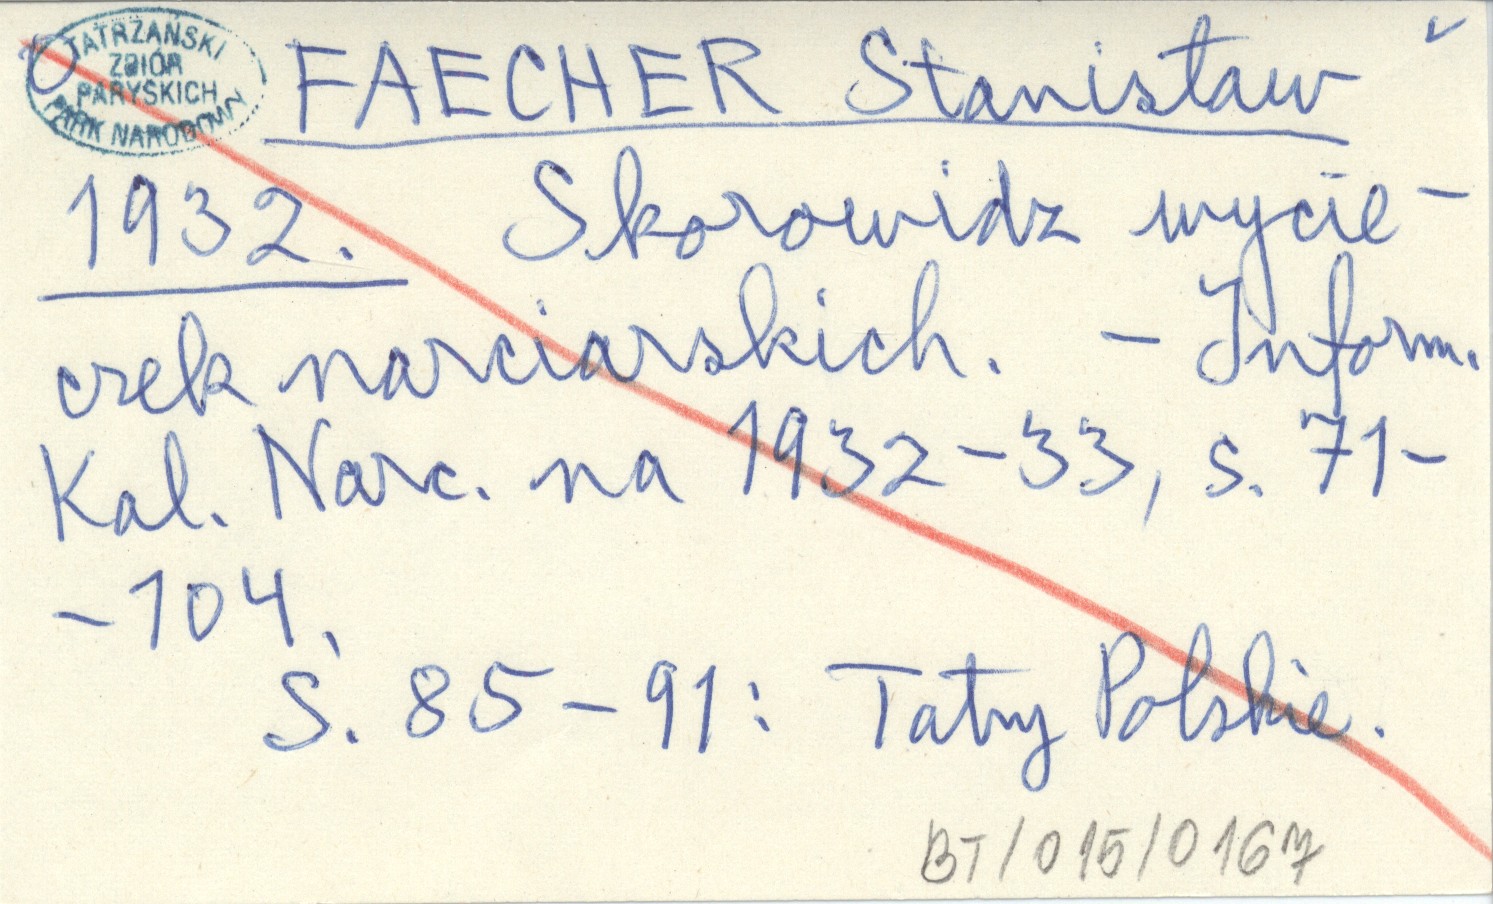 TATRZAŃSKI
ZBIÓR
PARYSKICH
PARK NARODOWY
FAECHER Stanisław
1932. Skorowidz wycie-
czek narciarskich. - Inform.
Kal. Narc. na 1932-33, s. 71-
-104.
S. 85-91: Tatry Polskie.
BT/015/0167